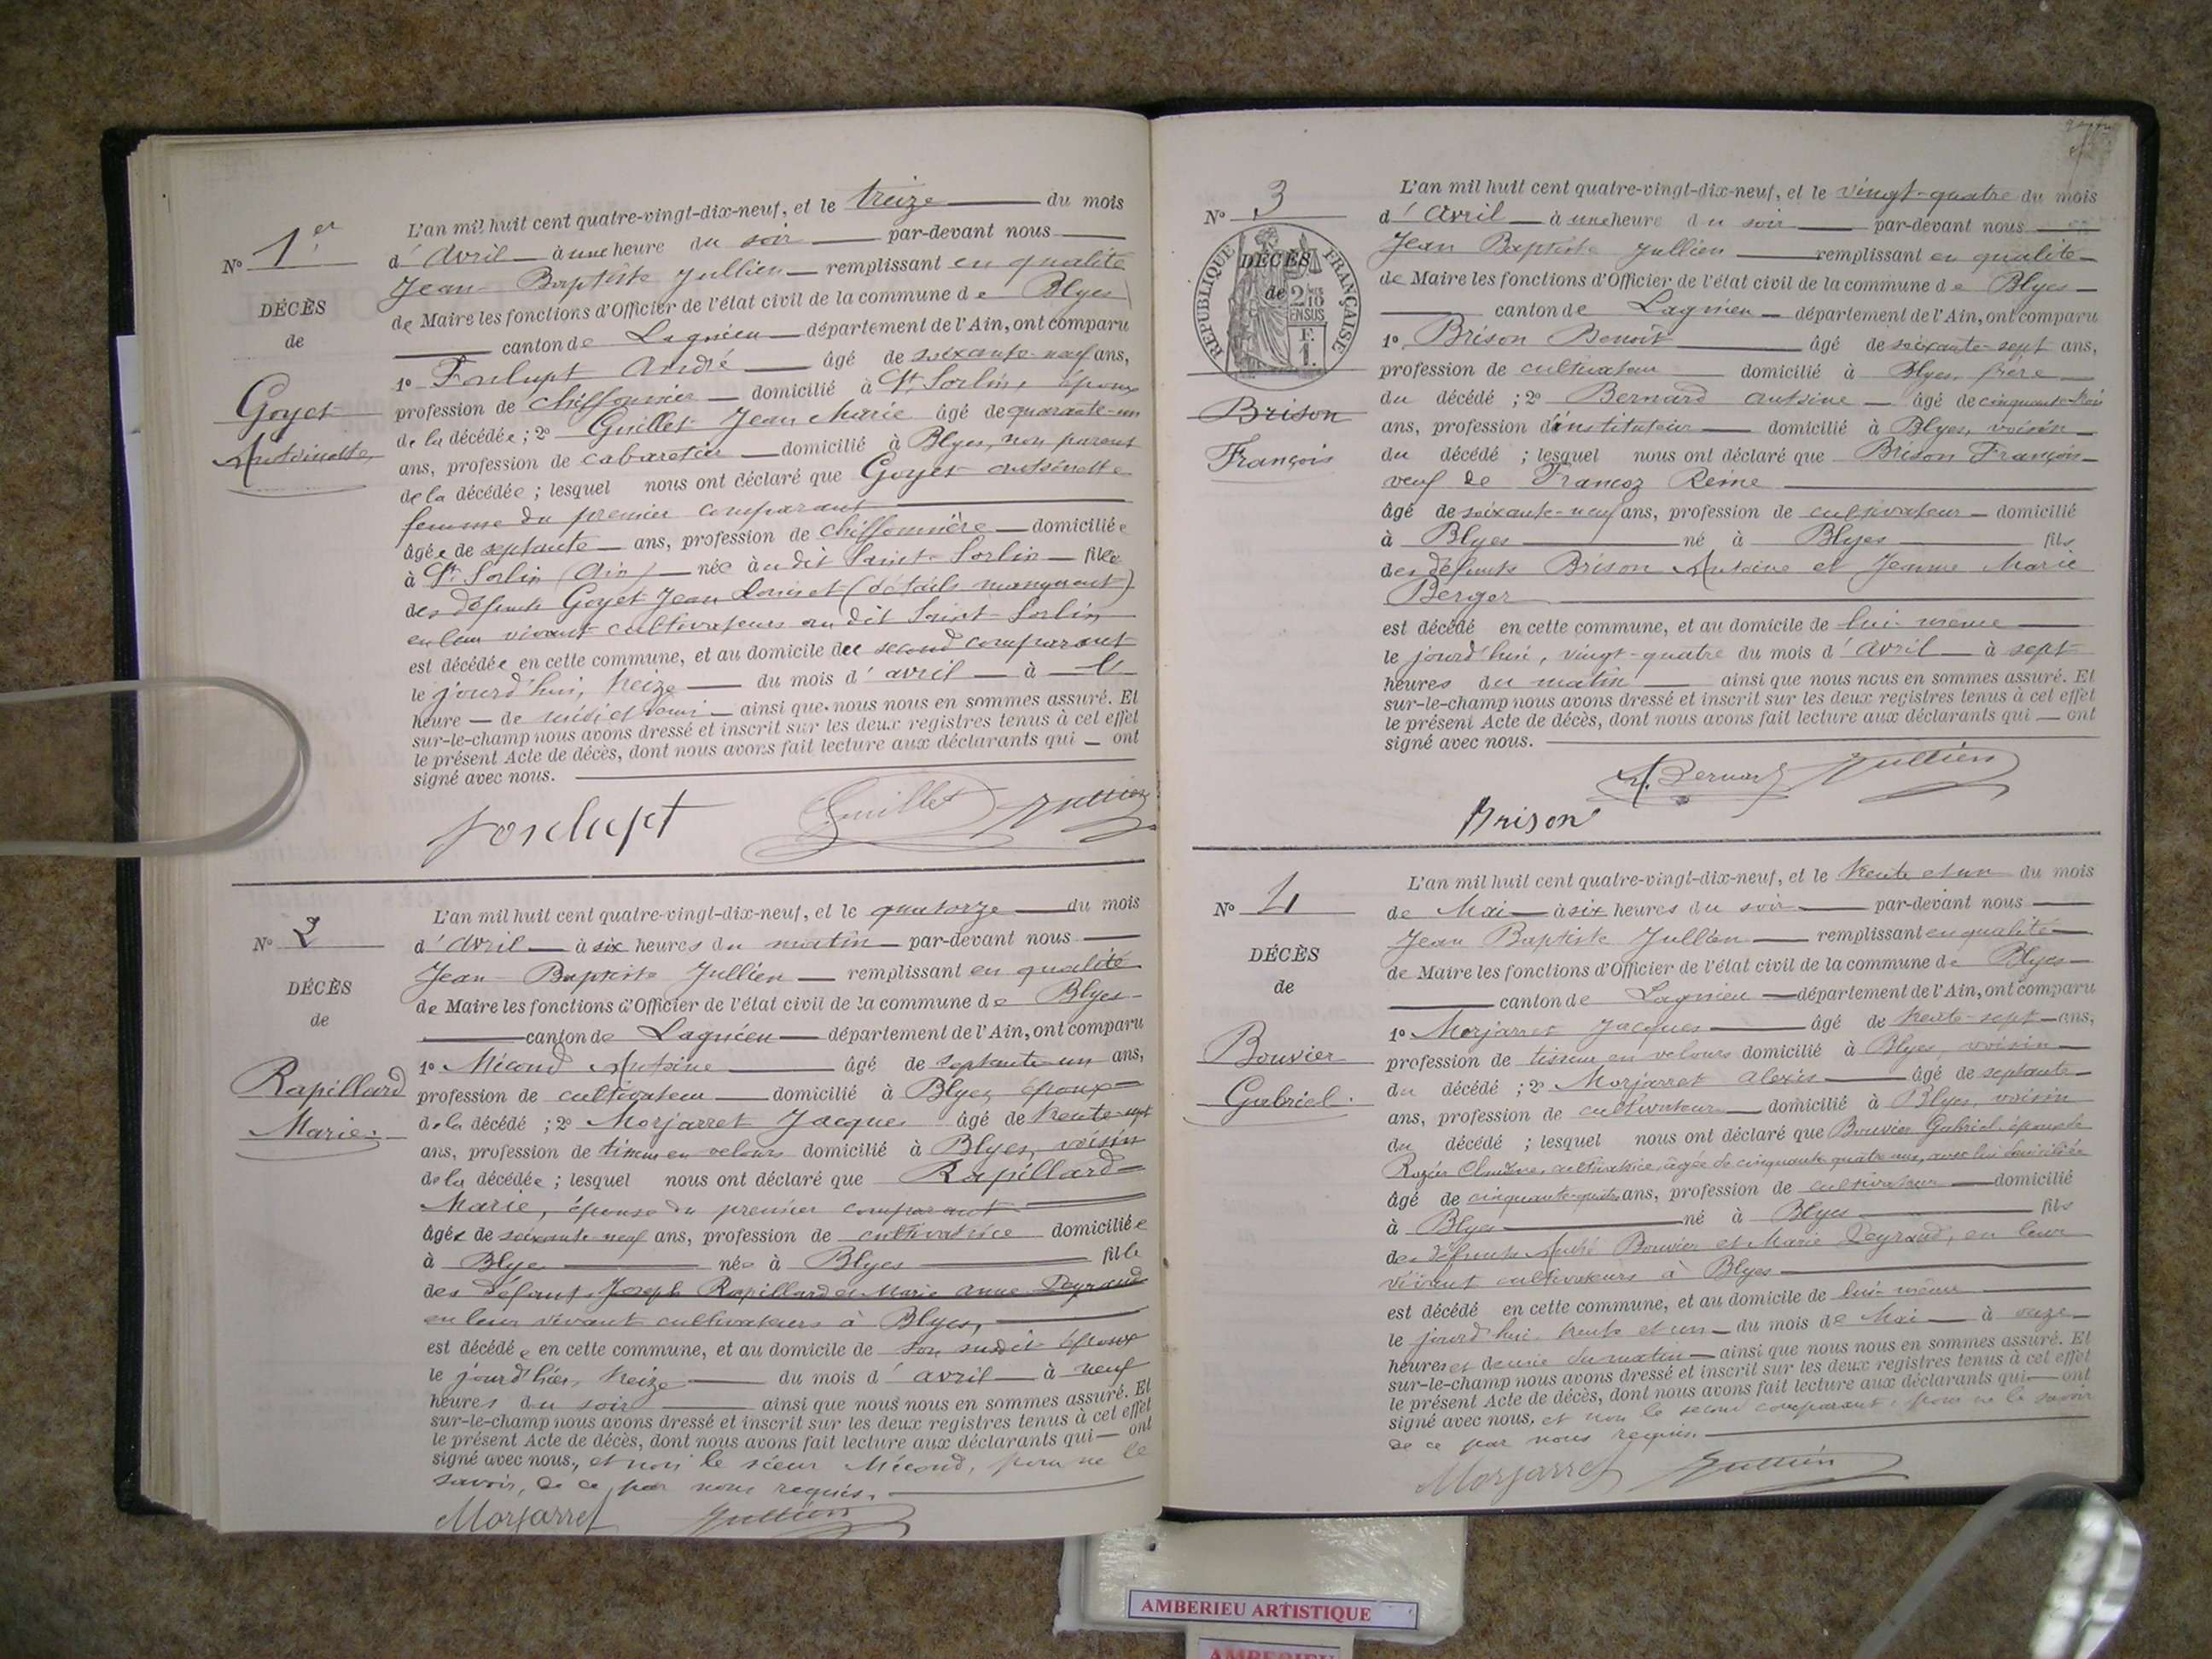 Nº 1er
DÉCÈS
de
Goyet
Antoinette
L'an mil huit cent quatre-vingt-dix-neuf, et le treize du mois
d'Avril à une heure du soir par-devant nous
Jean Baptiste Jullien remplissant en qualité
de Maire les fonctions d'Officier de l'état civil de la commune de Blyes
canton de Lagnieu département de l'Ain, ont comparu
1º Fonlupt André âgé de soixante-neuf ans,
profession de chiffonnier domicilié à St Sorlin, époux
de la décédée ; 2º Guillet Jean Marie âgé de quarante-un
ans, profession de cabaretier domicilié à Blyes, non parent
de la décédée ; lesquel nous ont déclaré que Goyet Antoinette
femme du premier comparant
âgée de septante ans, profession de chiffonnière domiciliée
à St Sorlin (Ain) née à udit Saint-Sorlin fille
des défunts Goyet Jean Louis et (détails manquent)
en leur vivant cultivateurs au dit Saint-Sorlin
est décédée en cette commune, et au domicile du second comparant
le jourd'hui, treize du mois d'avril à l'
heure de midi et demi ainsi que nous nous en sommes assuré. Et
sur-le-champ nous avons dressé et inscrit sur les deux registres tenus à cet effet
le présent Acte de décès, dont nous avons fait lecture aux déclarants qui ont
signé avec nous.
fonlupt Guillet Jullien
Nº 2
DÉCÈS
de
Rapillard
Marie
L'an mil huit cent quatre-vingt-dix-neuf, et le quatorze du mois
d'Avril à six heures du matin par-devant nous
Jean-Baptiste Jullien remplissant en qualité
de Maire les fonctions d'Officier de l'état civil de la commune de Blyes
canton de Lagnieu département de l'Ain, ont comparu
1º Mécond Antoine âgé de septante-un ans,
profession de cultivateur domicilié à Blyes, époux
de la décédé ; 2º Morjarret Jacques âgé de trente-sept
ans, profession de tisseur en velours domicilié à Blyes, voisin
de la décédée ; lesquel nous ont déclaré que Rapillard
Marie, épouse du premier comparant
âgée de soixante-neuf ans, profession de cultivatrice domiciliée
à Blyes née à Blyes fille
des défunts Joseph Rapillard et Marie Anne Peyraud
en leur vivant cultivateurs à Blyes,
est décédée en cette commune, et au domicile de son susdit époux
le jourd'hier, treize du mois d'avril à neuf
heures du soir ainsi que nous nous en sommes assuré. Et
sur-le-champ nous avons dressé et inscrit sur les deux registres tenus à cet effet
le présent Acte de décès, dont nous avons fait lecture aux déclarants qui ont
signé avec nous, et non le sieur Mécond, pour ne le
savoir, de ce par nous requis.
Morjarret Jullien
Nº 3
RÉPUBLIQUE FRANÇAISE
DÉCÈS
de
2/10 EN SUS
F. 1.
Brison
François
L'an mil huit cent quatre-vingt-dix-neuf, et le vingt-quatre du mois
d'Avril à une heure du soir par-devant nous
Jean Baptiste Jullien remplissant en qualité
de Maire les fonctions d'Officier de l'état civil de la commune de Blyes
canton de Lagnieu département de l'Ain, ont comparu
1º Brison Benoit âgé de soixante-sept ans,
profession de cultivateur domicilié à Blyes, frère
du décédé ; 2º Bernard Antoine âgé de cinquante-trois
ans, profession d'instituteur domicilié à Blyes, voisin
du décédé ; lesquel nous ont déclaré que Brison François
veuf de Francoz Reine
âgé de soixante-neuf ans, profession de cultivateur domicilié
à Blyes né à Blyes fils
des défunts Brison Antoine et Jeanne Marie
Berger
est décédé en cette commune, et au domicile de lui-même
le jourd'hui, vingt-quatre du mois d'avril à sept
heures du matin ainsi que nous nous en sommes assuré. Et
sur-le-champ nous avons dressé et inscrit sur les deux registres tenus à cet effet
le présent Acte de décès, dont nous avons fait lecture aux déclarants qui ont
signé avec nous.
A. Bernard Jullien
Brison
Nº 4
DÉCÈS
de
Bouvier
Gabriel.
L'an mil huit cent quatre-vingt-dix-neuf, et le trente et un du mois
de Mai à six heures du soir par-devant nous
Jean Baptiste Jullien remplissant en qualité
de Maire les fonctions d'Officier de l'état civil de la commune de Blyes
canton de Lagnieu département de l'Ain, ont comparu
1º Morjarret Jacques âgé de trente-sept ans,
profession de tisseur en velours domicilié à Blyes, voisin
du décédé ; 2º Morjarret Alexis âgé de septante
ans, profession de cultivateur domicilié à Blyes, voisin
du décédé ; lesquel nous ont déclaré que Bouvier Gabriel époux de
Rozier Claudine, cultivatrice, âgée de cinquante quatre ans, avec lui domiciliée
âgé de cinquante-quatre ans, profession de cultivateur domicilié
à Blyes né à Blyes fils
des défunts André Bouvier et Marie Peyraud, en leur
vivant cultivateurs à Blyes
est décédé en cette commune, et au domicile de lui-même
le jourd'hui trente et un du mois de Mai à onze
heures et demie du matin ainsi que nous nous en sommes assuré. Et
sur-le-champ nous avons dressé et inscrit sur les deux registres tenus à cet effet
le présent Acte de décès, dont nous avons fait lecture aux déclarants qui ont
signé avec nous, et non le second comparant, pour ne le savoir
de ce par nous requis.
Morjarret Jullien
AMBERIEU ARTISTIQUE
AMBERIEU